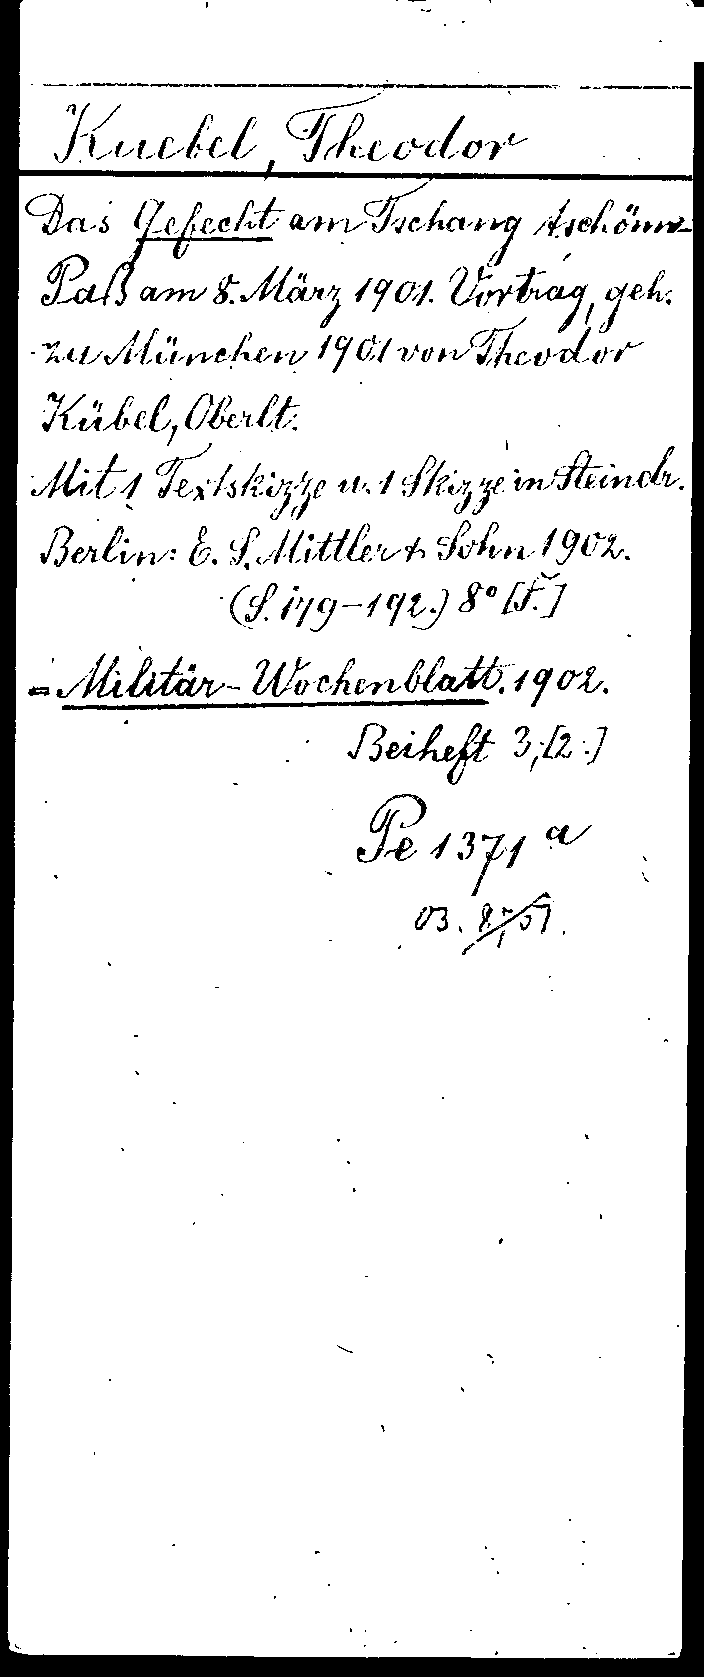 Kuebel, Theodor
Das Gefecht am Tschang tschönn-
Paß am 8. März 1901. Vortrag, geh.
zu München 1901 von Theodor
Kübel, Oberlt.
Mit 1 Textskizze u. 1 Skizze in Steindr.
Berlin: E. S. Mittler & Sohn 1902.
(S. 179-192.) 8° [F.]
= Militär-Wochenblatt. 1902.
Beiheft 3,[2.]
Pe 1371 a
03.